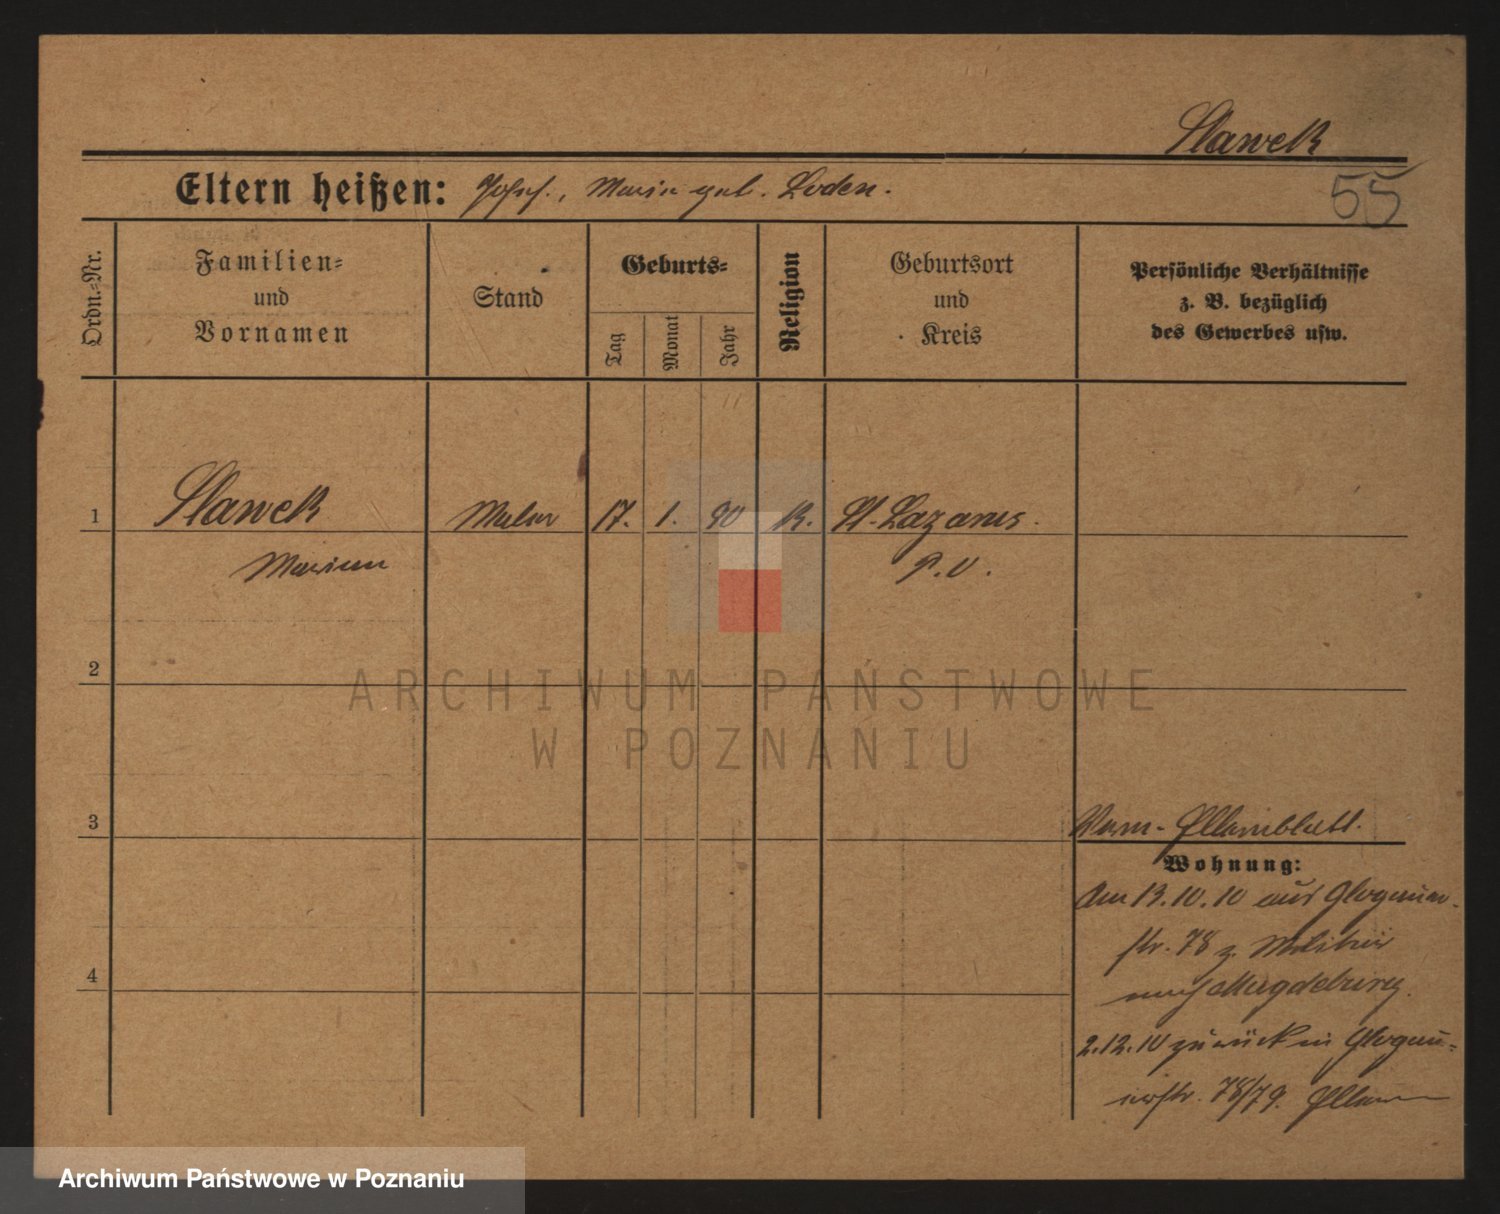 Slawek
55
Eltern heißen: Josef., Maria geb. Loden.
Ordn.=Nr.
Familien=
und
Vornamen
Stand
Geburts=
Tag
Monat
Jahr
Religion
Geburtsort
und
Kreis
Persönliche Verhältnisse
z. B. bezüglich
des Gewerbes usw.
1 Slawek Maler 17. 1. 90 K. St. Lazarus.
Marian P.O.
2
ARCHIWUM PAŃSTWOWE
W POZNANIU
3
Wohnung:
Am 13.10.10 aus Glogauer-
str. 78 z. Militär
nach Magdeburg.
4
2.12.10 zurück in Glogau=
erstr. 78/79.
Archiwum Państwowe w Poznaniu